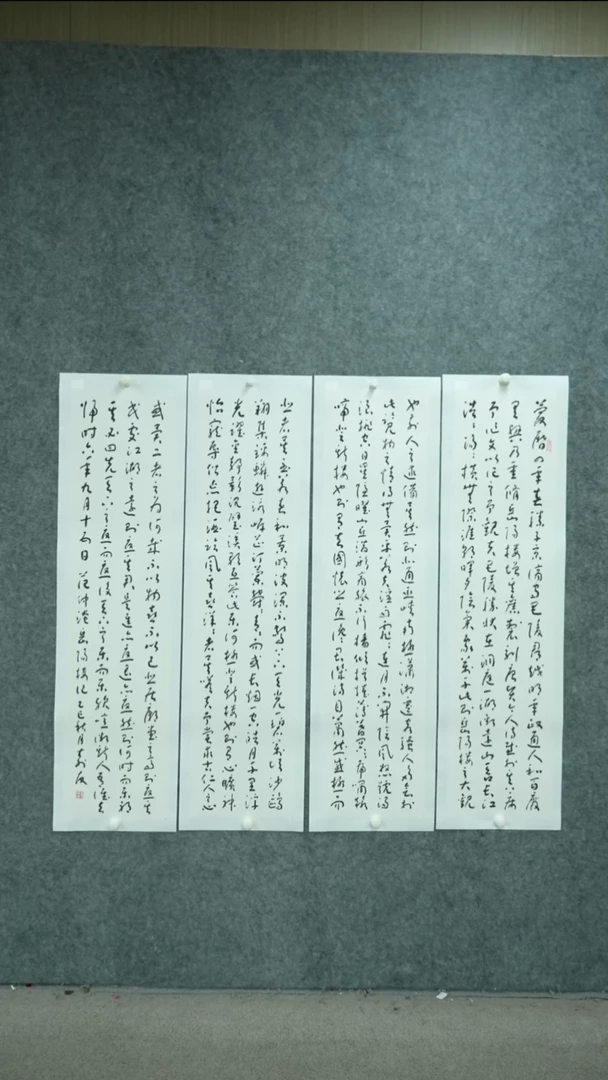 慶曆四年春滕子京謫守巴陵郡越明年政通人和百廢
具興乃重修岳陽樓增其舊制刻唐賢今人詩賦於其上屬
予作文以記之予觀夫巴陵勝狀在洞庭一湖銜遠山吞長江
浩浩湯湯橫無際涯朝暉夕陰氣象萬千此則岳陽樓之大觀
也前人之述備矣然則北通巫峽南極瀟湘遷客騷人多會於
此覽物之情得無異乎若夫淫雨霏霏連月不開陰風怒號濁
浪排空日星隱曜山岳潛形商旅不行檣傾楫摧薄暮冥冥虎嘯猿
啼登斯樓也則有去國懷鄉憂讒畏譏滿目蕭然感極而
悲者矣至若春和景明波瀾不驚上下天光一碧萬頃沙鷗
翔集錦鱗游泳岸芷汀蘭鬱鬱青青而或長煙一空皓月千里浮
光躍金靜影沉璧漁歌互答此樂何極登斯樓也則有心曠神
怡寵辱偕忘把酒臨風其喜洋洋者矣嗟夫予嘗求古仁人之心
或異二者之為何哉不以物喜不以己悲居廟堂之高則憂其
民處江湖之遠則憂其君是進亦憂退亦憂然則何時而樂耶
其必曰先天下之憂而憂後天下之樂而樂歟噫微斯人吾誰與
歸時六年九月十五日 范仲淹岳陽樓記乙巳秋月